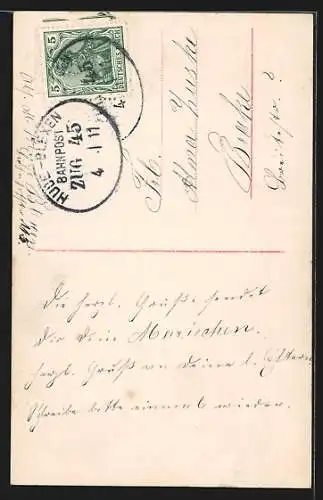 5
DEUTSCHES REICH
HUDE-BLEXEN
BAHNPOST
ZUG 45
4 11
Frl.
Alma
Brake
Breitestr. 8
Die herzl. Grüße sendet
Dir Deine Mariechen.
Herzl. Gruß an Deine l. Eltern
Schreibe bitte einmal wieder.